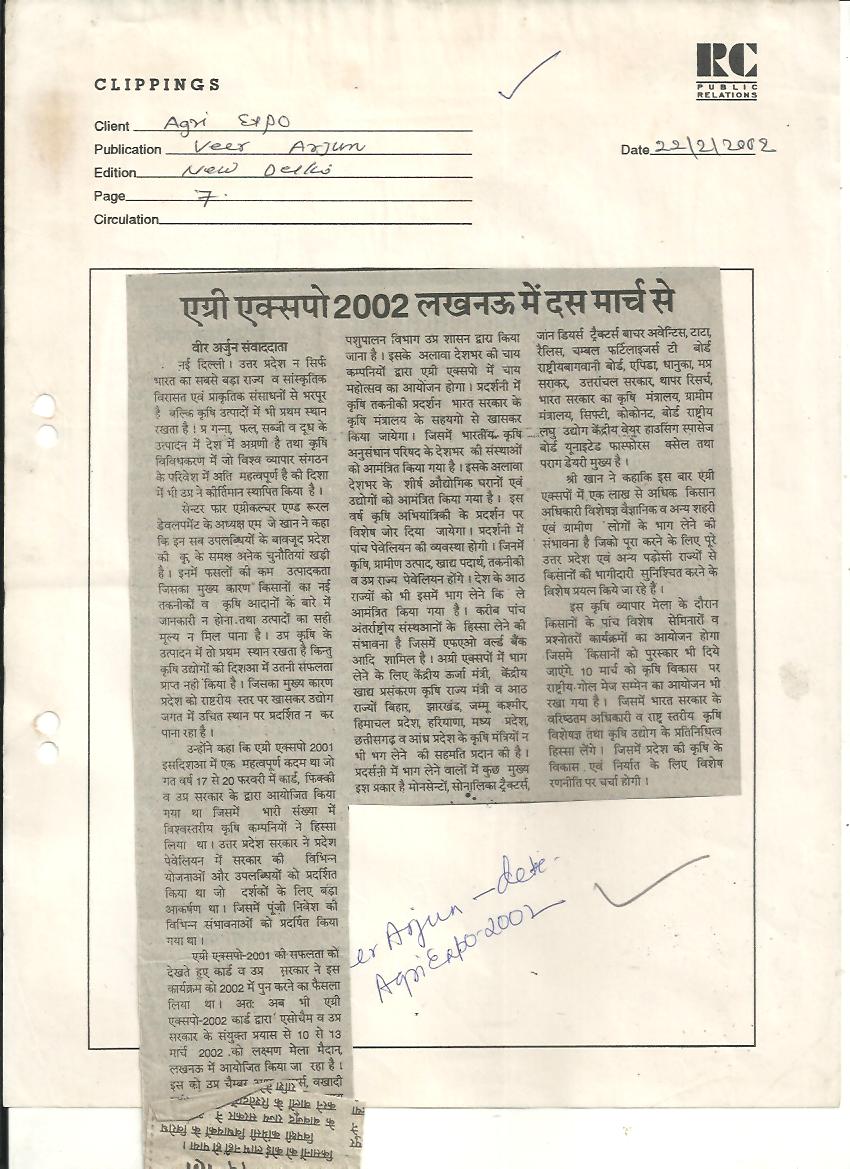 CLIPPINGS
RC
PUBLIC
RELATIONS
Client Agri Expo
Publication Veer Arjun
Date 22/2/2002
Edition New Delhi
Page 7.
Circulation
एग्री एक्सपो 2002 लखनऊ में दस मार्च से
वीर अर्जुन संवाददाता
नई दिल्ली। उत्तर प्रदेश न सिर्फ
भारत का सबसे बड़ा राज्य व सांस्कृतिक
विरासत एवं प्राकृतिक संसाधनों से भरपूर
है बल्कि कृषि उत्पादों में भी प्रथम स्थान
रखता है। प्र गन्ना, फल, सब्जी व दूध के
उत्पादन में देश में अग्रणी है तथा कृषि
विविधकरण में जो विश्व व्यापार संगठन
के परिवेश में अति महत्वपूर्ण है की दिशा
में भी उप्र ने कीर्तिमान स्थापित किया है।
सेन्टर फार एग्रीकल्चर एण्ड रूरल
डेवलपमेंट के अध्यक्ष एम जे खान ने कहा
कि इन सब उपलब्धियों के बावजूद प्रदेश
की कृ के समक्ष अनेक चुनौतियां खड़ी
है। इनमें फसलों की कम उत्पादकता
जिसका मुख्य कारण किसानों का नई
तकनीकों व कृषि आदानों के बारे में
जानकारी न होना तथा उत्पादों का सही
मूल्य न मिल पाना है। उप्र कृषि के
उत्पादन में तो प्रथम स्थान रखता है किन्तु
कृषि उद्योगों की दिशआ में उतनी संफलता
प्राप्त नहीं किया है। जिसका मुख्य कारण
प्रदेश को राष्टरीय स्तर पर खासकर उद्योग
जगत में उचित स्थान पर प्रदर्शित न कर
पाना रहा है।
उन्होंने कहा कि एग्री एक्सपो 2001
इसदिशआ में एक महत्वपूर्ण कदम था जो
गत वर्ष 17 से 20 फरवरी में कार्ड, फिक्की
व उप्र सरकार के द्वारा आयोजित किया
गया था जिसमें भारी संख्या में
विश्वस्तरीय कृषि कम्पनियों ने हिस्सा
लिया था। उत्तर प्रदेश सरकार ने प्रदेश
पेवेलियन में सरकार की विभिन्न
योजनाओं और उपलब्धियों को प्रदर्शित
किया था जो दर्शकों के लिए बड़ा
आकर्षण था। जिसमें पूंजी निवेश की
विभिन्न संभावनाओं को प्रदर्षित किया
गया था।
एग्री एक्सपो-2001 की सफलता को
देखते हुए कार्ड व उप्र सरकार ने इस
कार्यक्रम को 2002 में पुन करने का फैसला
लिया था। अत: अब भी एग्री
एक्सपो-2002 कार्ड द्वारा एसोचैम व उप्र
सरकार के संयुक्त प्रयास से 10 से 13
मार्च 2002 को लक्ष्मण मेला मैदान,
लखनऊ में आयोजित किया जा रहा है।
इस को उप्र चैम्बर
पशुपालन विभाग उप्र शासन द्वारा किया
जाना है। इसके अलावा देशभर की चाय
कम्पनियों द्वारा एग्री एक्सपो में चाय
महोत्सव का आयोजन होगा। प्रदर्शनी में
कृषि तकनीकी प्रदर्शन भारत सरकार के
कृषि मंत्रालय के सहयगो से खासकर
किया जायेगा। जिसमें भारतीय कृषि
अनुसंधान परिषद के देशभर की संस्थाओं
को आमंत्रित किया गया है। इसके अलावा
देशभर के शीर्ष औद्योगिक घरानों एवं
उद्योगों को आमंत्रित किया गया है। इस
वर्ष कृषि अभियांत्रिकी के प्रदर्शन पर
विशेष जोर दिया जायेगा। प्रदर्शनी में
पांच पेवेलियन की व्यवस्था होगी। जिनमें
कृषि, ग्रामीण उत्पाद, खाद्य पदार्थ, तकनीकी
व उप्र राज्य पेवेलियन होंगे। देश के आठ
राज्यों को भी इसमें भाग लेने कि ले
आमंत्रित किया गया है। करीब पांच
अंतर्राष्ट्रीय संस्थआनों के हिस्सा लेने की
संभावना है जिसमें एफएओ वर्ल्ड बैंक
आदि शामिल है। अग्री एक्सपों में भाग
लेने के लिए केंद्रीय ऊर्जा मंत्री, केंद्रीय
खाद्य प्रसंकरण कृषि राज्य मंत्री व आठ
राज्यों बिहार, झारखंड, जम्मू कश्मीर,
हिमाचल प्रदेश, हरियाणा, मध्य प्रदेश,
छत्तीसगढ़ व आंध्र प्रदेश के कृषि मंत्रियों न
भी भग लेने की सहमति प्रदान की है।
प्रदर्सनी में भाग लेने वालों में कुछ मुख्य
इश प्रकार है मोनसेन्टों, सोनालिका ट्रैक्टर्स,
जॉन डियर्स ट्रैक्टर्स बाचर अवेन्टिस, टाटा,
रैलिस, चम्बल फर्टिलाइजर्स टी बोर्ड
राष्ट्रीयबागवानी बोर्ड, एपिडा, धानुका, मप्र
सराकर, उत्तरांचल सरकार, थापर रिसर्च,
भारत सरकार का कृषि मंत्रालय, ग्रामीम
मंत्रालय, सिफ्टी, कोकोनट, बोर्ड राष्ट्रीय
लघु उद्योग केंद्रीय वेयुर हाङसिंग स्पासेज
बोर्ड यूनाइटेड फास्फोरस क्सेल तथा
पराग डेयरी मुख्य है।
श्री खान ने कहाकि इस बार एंग्री
एक्सपों में एक लाख से अधिक किसान
अधिकारी विशेषज्ञ वैज्ञानिक व अन्य शहरी
एवं ग्रामीण लोगों के भाग लेने की
संभावना है जिको पूरा करने के लिए पूरे
उत्तर प्रदेश एवं अन्य पडोसी राज्यों से
किसानों की भागीदारी सुनिश्चित करने के
विशेष प्रयत्न किये जा रहे हैं।
इस कृषि व्यापार मेला के दौरान
किसानों के पांच विशेष सेमिनारों व
प्रश्नोतरी कार्यक्रमों का आयोजन होगा
जिसमे किसानों को पुरस्कार भी दिये
जाएंगे. 10 मार्च को कृषि विकास पर
राष्ट्रीय गोल मेज सम्मेन का आयोजन भी
रखा गया है। जिसमें भारत सरकार के
वरिष्ठतम अधिकारी व राष्ट्र स्तरीय कृषि
विशेषज्ञ तथा कृषि उद्योग के प्रतिनिधित्व
हिस्सा लेंगे। जिसमें प्रदेश की कृषि के
विकास एवं निर्यात के लिए विशेष
रणनीति पर चर्चा होगी।
er Arjun -
Agri Expo-2002